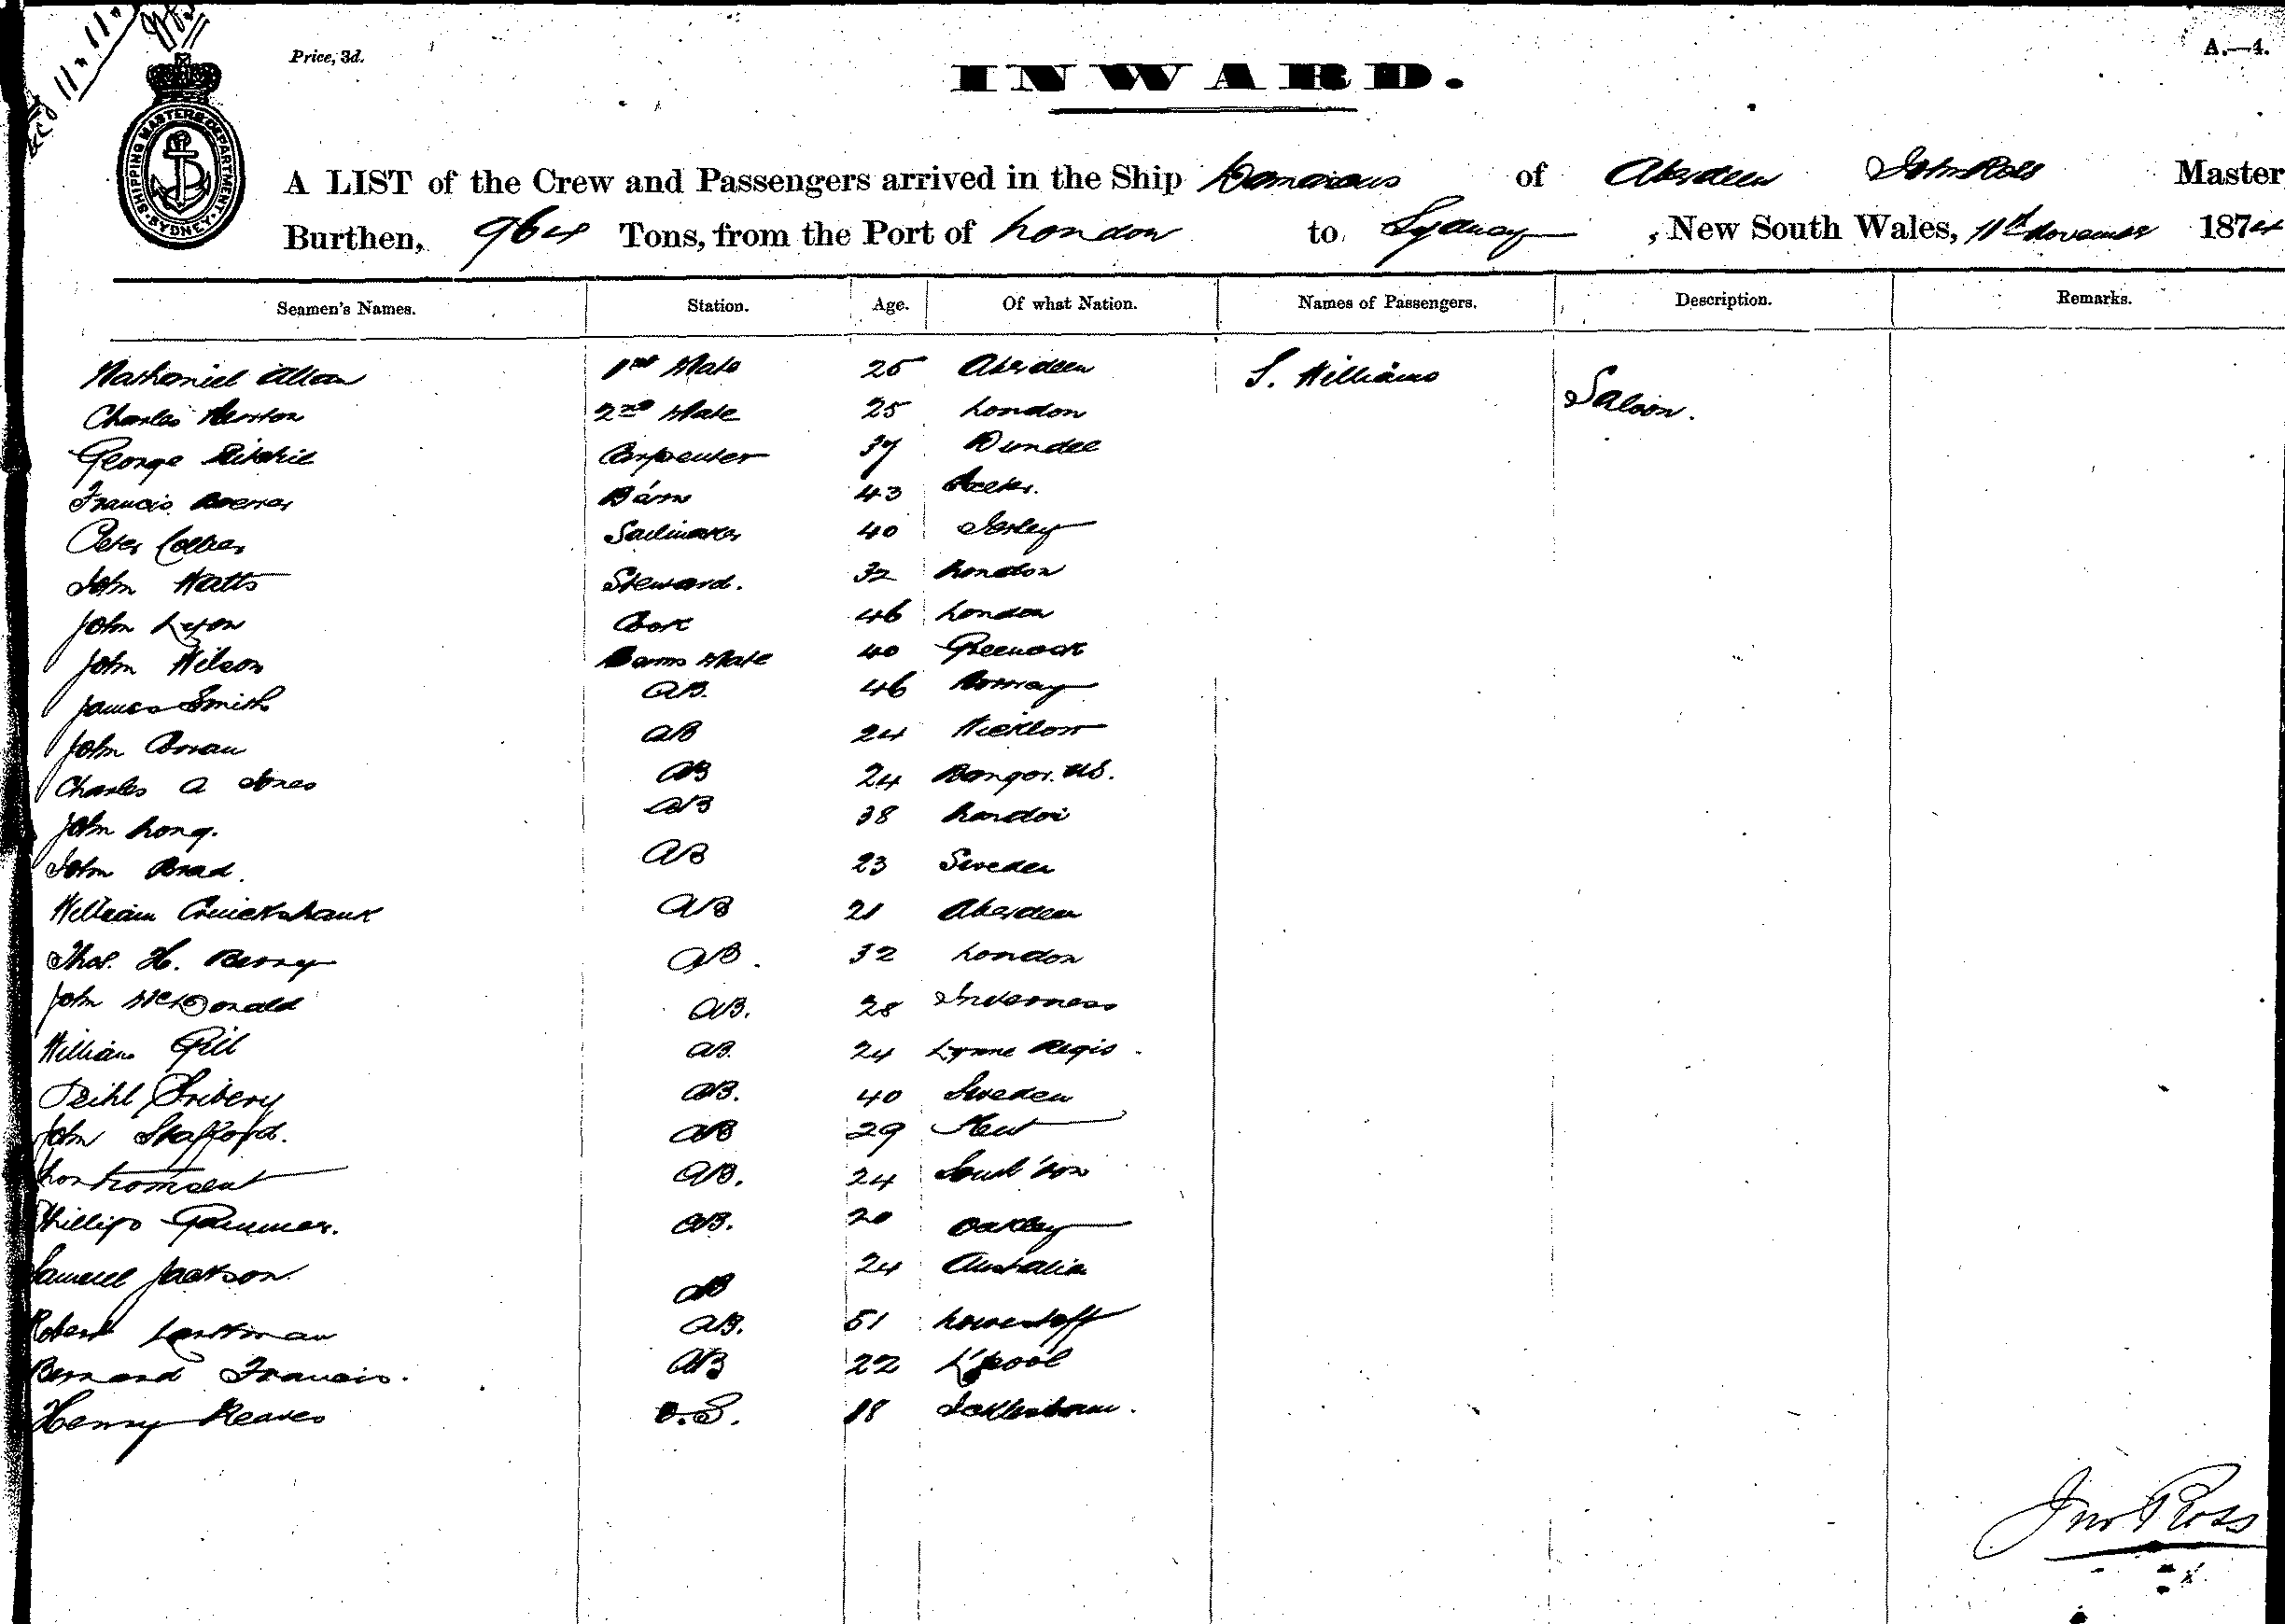 Price, 3d.
A.—4.
INWARD.
SHIPPING MASTERS DEPARTMENT SYDNEY
A LIST of the Crew and Passengers arrived in the Ship Damascus of Aberdeen John Ross Master
Burthen, 964 Tons, from the Port of London to Sydney, New South Wales, 11th November 1874
Seamen's Names. Station. Age. Of what Nation. Names of Passengers. Description. Remarks.
Nathaniel Allan 1st Mate 25 Aberdeen S. Williams Saloon.
Charles 2nd Mate 25 London
George Ritchie Carpenter 37 Dundee
Francis 43
Peter Collier Sailmaker 40
John Watts Steward. 32 London
John Lyon Cook 46 London
John Wilson Mate 40 Greenock
James Smith AB. 46
John AB 24 Wicklow
Charles A Jones AB 24 Bangor. US.
John Long. AB 38 London
John AB 23 Sweden
William Cruickshank AB 21 Aberdeen
Thos. H. Berry AB. 32 London
John McDonald AB. 28 Inverness
William Gill AB. 24 Lyme Regis.
AB. 40 Sweden
John Stafford. AB 29 Kent
AB. 24 South'ton
Phillip AB. 20 Oakley
Samuel Jackson AB 24 Australia
Robert AB. 51 Lowestoff
Bernard Francis. AB 22 L'pool
Henry Reaves O.S. 18
Jno Ross